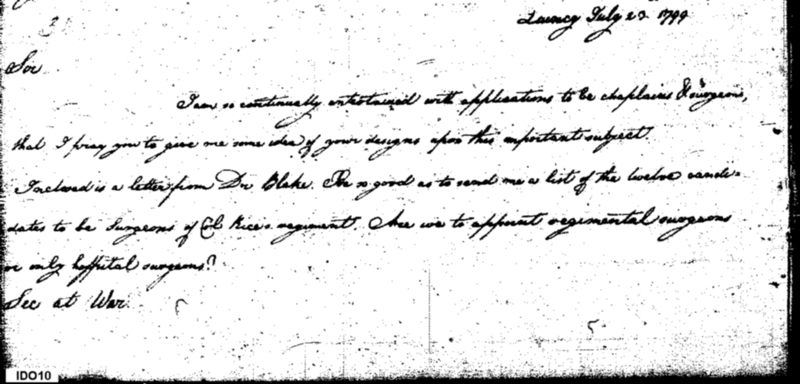 Quincy July 23. 1799
Sir
I am so continually entertained with applications to be chaplains & surgeons,
that I pray you to give me some idea of your designs upon this important subject.
Inclosed is a letter from Dr Blake. Be so good as to send me a list of the twelve candi-
dates to be Surgeons of Col Rice's regiment. Are we to appoint regimental surgeons
or only hospital surgeons?
Sec at War.
IDO10